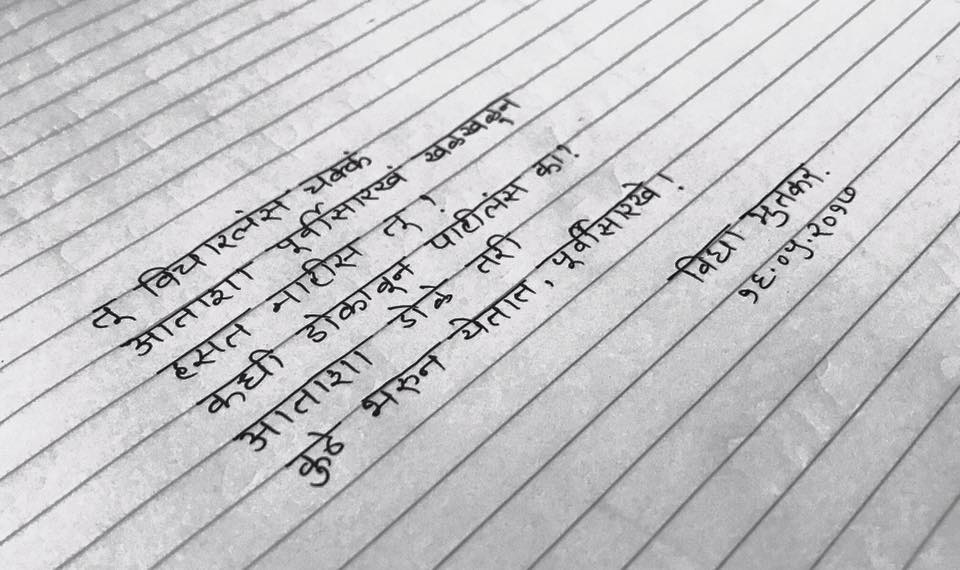 तू विचारलंस चक्कं
आताशा पूर्वीसारखं खळखळून
हसत नाहीस तू !
कधी डोकावून पाहीलंस का?
आताशा डोळे तरी
कुठे भरुन येतात, पूर्वीसारखे !
विद्या भुतकर.
१६.०५.२०१७